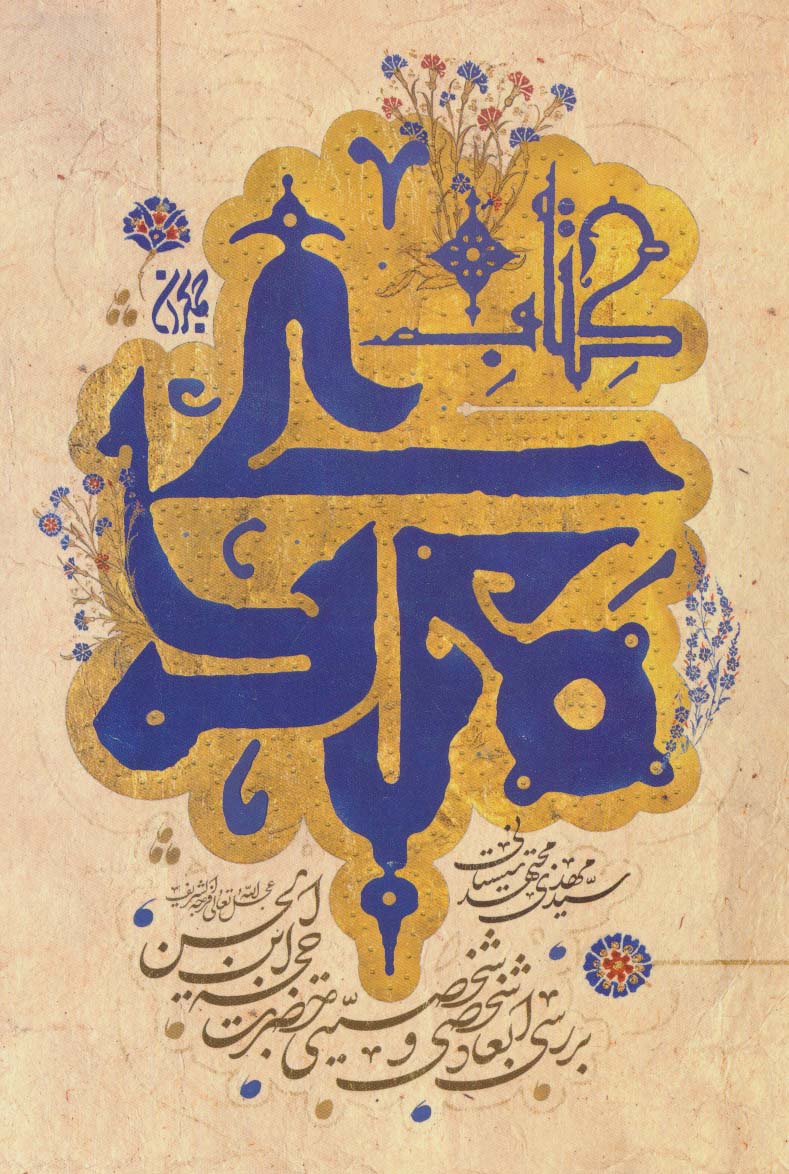 کتاب
جمکران
سیّد مهدی مجتهد سیستانی
بررسی ابعاد شخصی و شخصیّتی حضرت حجة ابن الحسن
عجل الله تعالی فرجه الشریف